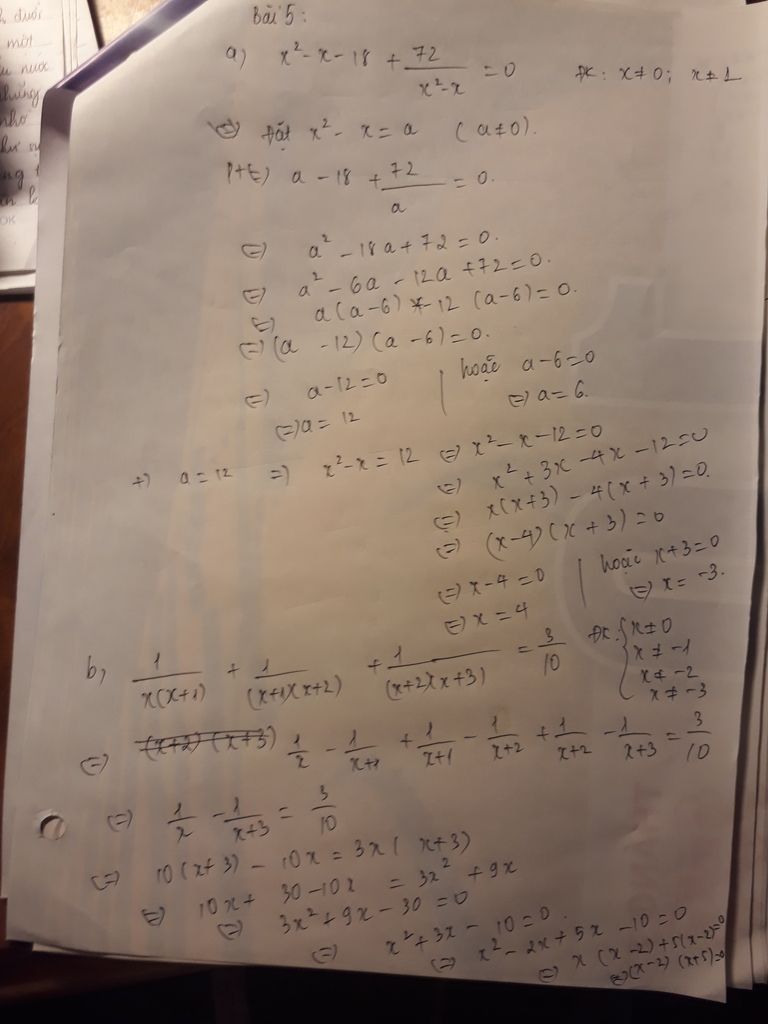 Bài 5:
a) x² - x - 18 + 72/(x² - x) = 0 ĐK: x ≠ 0; x ≠ 1
Đặt x² - x = a (a ≠ 0).
a - 18 + 72/a = 0.
(=) a² - 18a + 72 = 0.
(=) a² - 6a - 12a + 72 = 0.
(=) a(a-6) - 12 (a-6) = 0.
(=) (a - 12) (a - 6) = 0.
(=) a - 12 = 0 | hoặc a - 6 = 0
(=) a = 12 | (=) a = 6.
+) a = 12 =) x² - x = 12 (=) x² - x - 12 = 0
(=) x² + 3x - 4x - 12 = 0
(=) x(x+3) - 4(x+3) = 0.
(=) (x-4)(x+3) = 0
(=) x - 4 = 0 | hoặc x + 3 = 0
(=) x = 4 | (=) x = -3.
b, 1/(x(x+1)) + 1/((x+1)(x+2)) + 1/((x+2)(x+3)) = 3/10 ĐK: { x ≠ 0
x ≠ -1
x ≠ -2
x ≠ -3
(=) 1/x - 1/(x+1) + 1/(x+1) - 1/(x+2) + 1/(x+2) - 1/(x+3) = 3/10
(=) 1/x - 1/(x+3) = 3/10
(=) 10(x+3) - 10x = 3x(x+3)
(=) 10x + 30 - 10x = 3x² + 9x
(=) 3x² + 9x - 30 = 0
(=) x² + 3x - 10 = 0.
(=) x² - 2x + 5x - 10 = 0
(=) x(x-2) + 5(x-2) = 0
(=) (x-2)(x+5) = 0